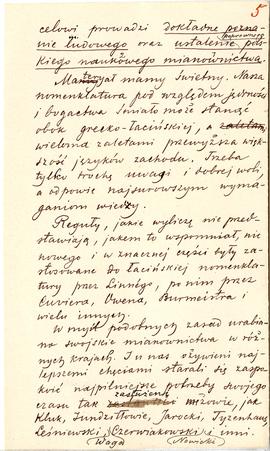 5
celowi prowadzi dokładne pozna-
nie ludowego oraz ustalenie pol-
skiego naukowego mianownictwa.
Materyał mamy świetny. Nasza
nomenklatura pod względem jędrności
i bogactwa śmiało może stanąć
obok grecko-łacińskiej, a
wieloma zaletami przewyższa więk-
szość języków zachodu. Trzeba
tylko trochę uwagi i dobrej woli,
a odpowie najsurowszym wyma-
ganiom wiedzy.
Reguły, jakie wyliczę nie przed-
stawiają, jakem to wspomniał, nic
nowego i w znacznej części były za-
stosowane do łacińskiej nomenkla-
tury przez Linnégo, po nim przez
Cuviera, Owena, Burmeistra i
wielu innych.
W myśl podobnych zasad urabia-
no swojskie mianownictwa w róż-
nych krajach. I u nas ożywieni naj-
lepszemi chęciami starali się zaspo-
koić najpilniejsze potrzeby swojego
czasu tak zasłużeni mężowie, jak
Kluk, Jundziłłowie, Jarocki, Tyzenhauz,
Leśniewski, Czerwiakowski i inni.
Waga Nowicki